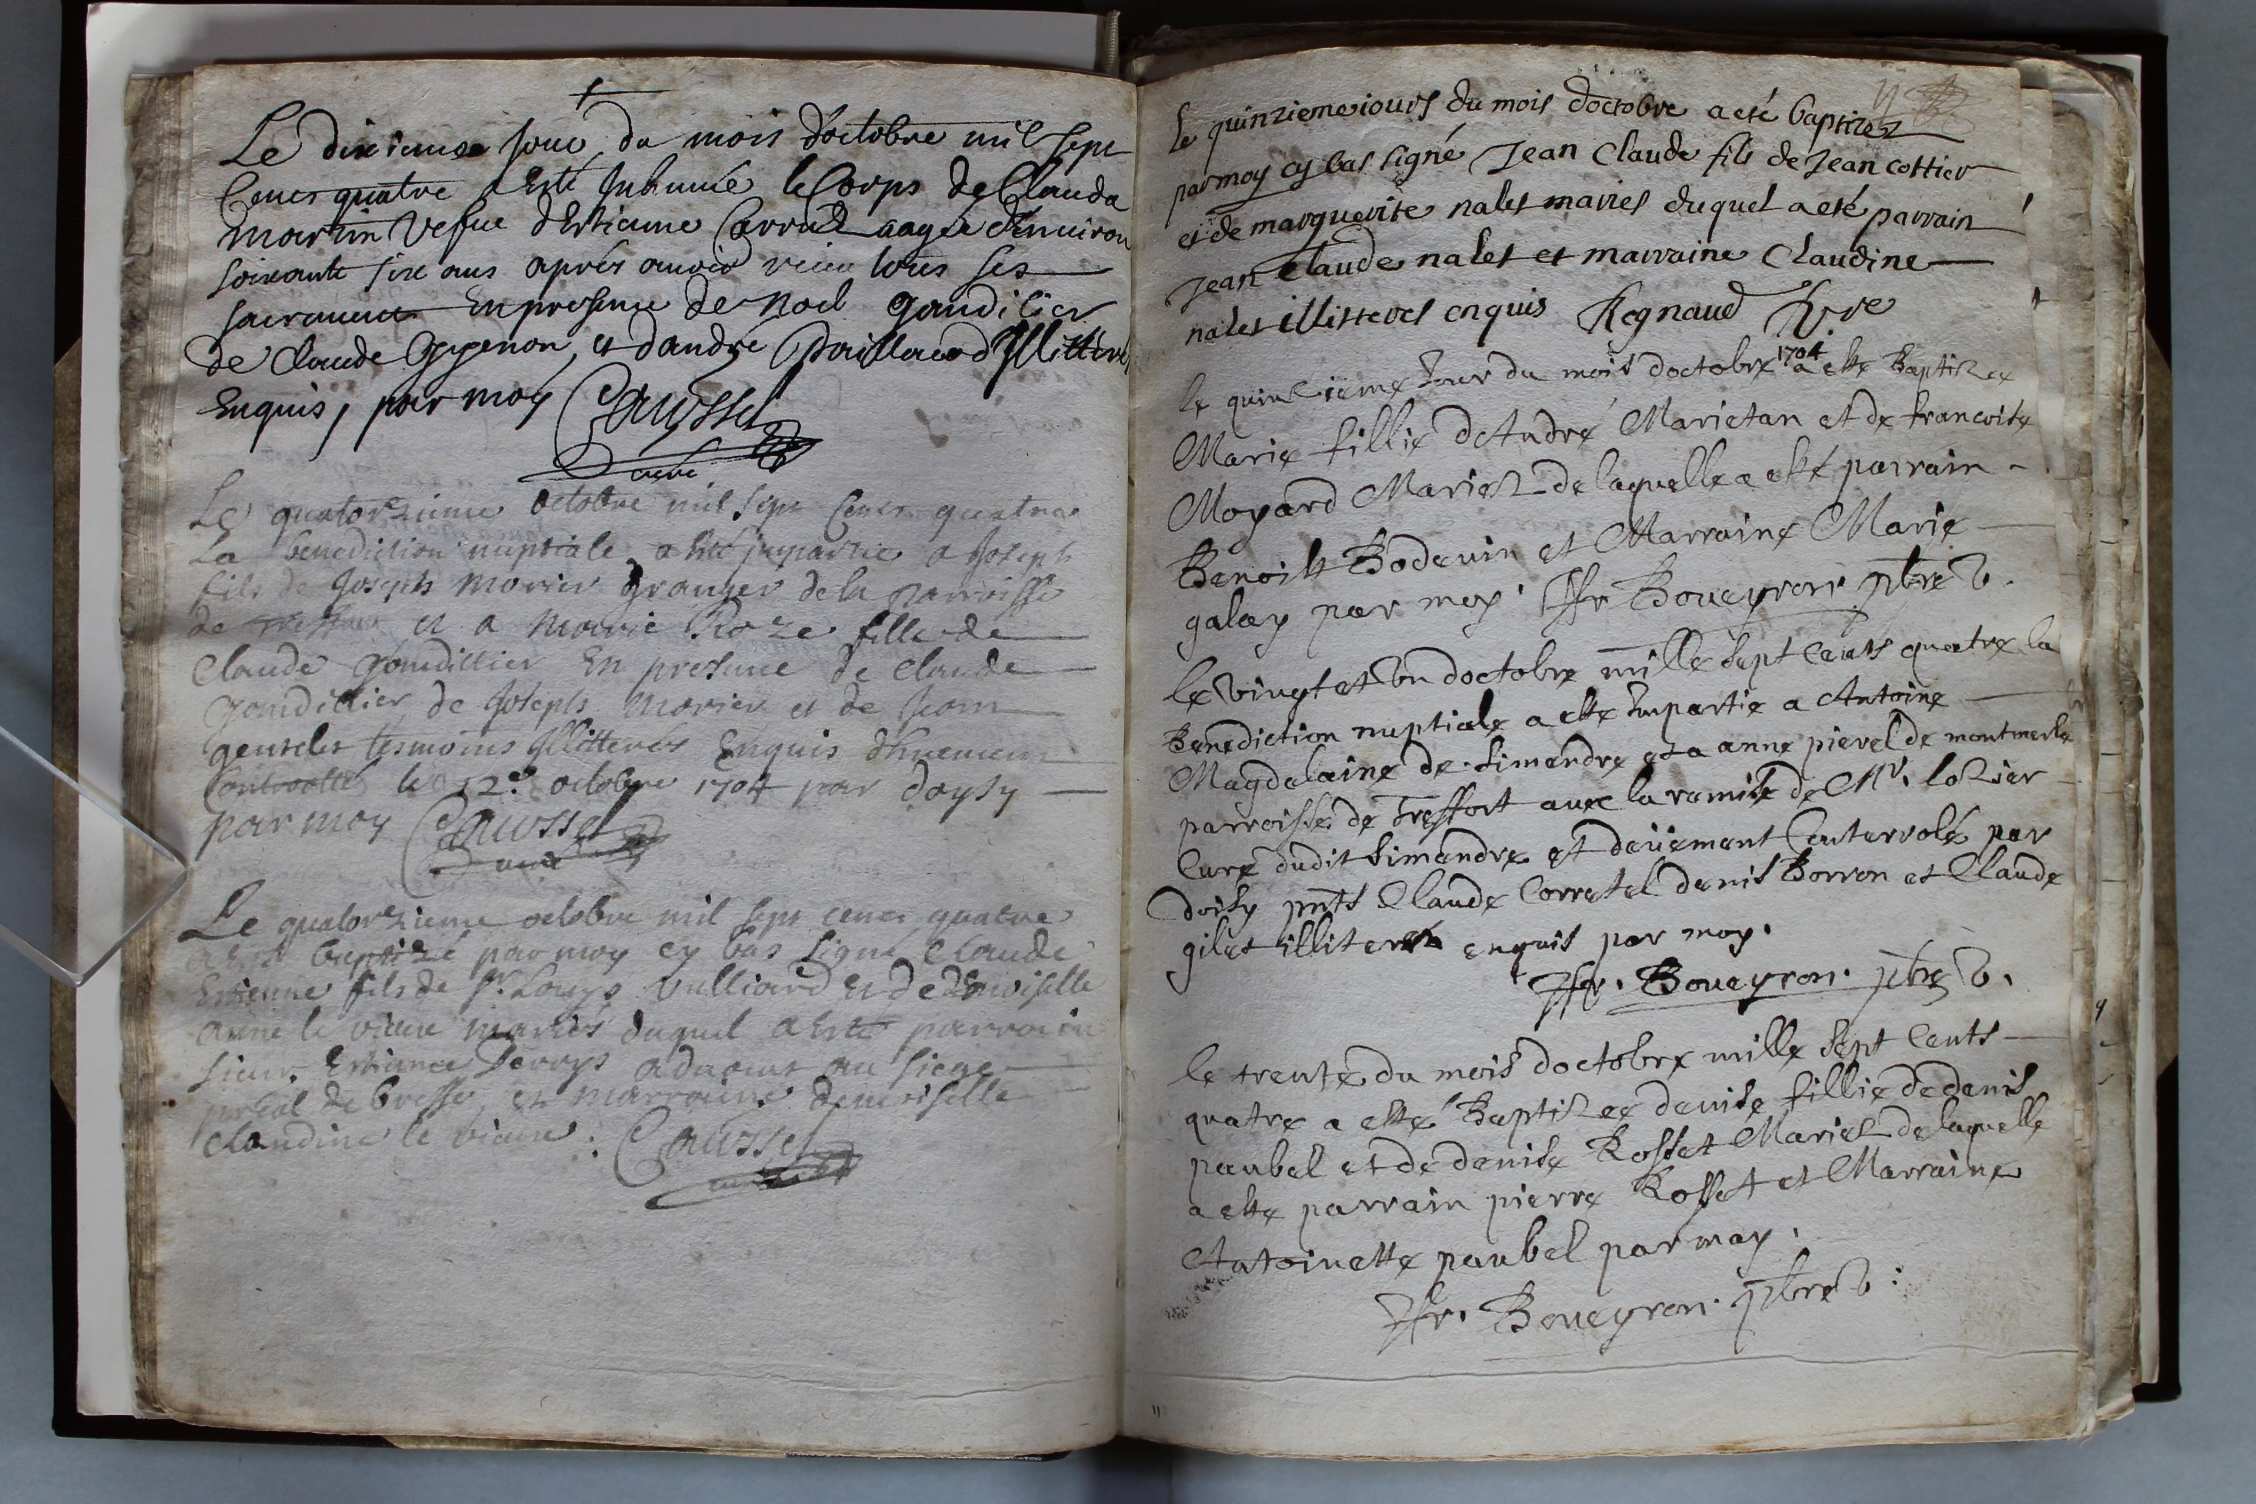 Le dixieme jour du mois d'octobre mil sept
Cents quatre a Esté Inhumé le Corps de Clauda
martin Vefue d'Estienne Carruel aagée d'enuiron
soixante six ans aprés auoir receu tous ses
sacrements En presence de noel gondilier
de Claude Gygenon et dandré Paillard Illitteres
Enquis, par moy Caussel
curé
Le quatorzieme octobre mil sept Cents quatre
La benediction nuptiale a Esté jmpartie a Joseph
fils de Joseph morier granger de la parroisse
de et a marie Roze fille de
Claude gondillier En presence de Claude
gondillier de Joseph morier et de Jean
tesmoins Jllitteres Enquis düement
Controollés le 12e octobre 1704 par doysy
par moy Caussel
curé
Le quatorzieme octobre mil sept cents quatre
a Esté baptizé par moy cy bas signé Claude
Estienne fils de Sr. Louys vulliard et de demoiselle
anne le vieux mariés duquel a Esté parrain
sieur Estienne aduocat au siege
prãl de bresse et marraine demoiselle
claudine le vieux : Caussel
curé
le quinziemeiours du mois doctobre a eté baptizez
par moy cy bas signé Jean Claude fils de Jean cottier
et de marguerite nalet mariés duquel a eté parrain
Jean Claude nalet et marraine Claudine
nalet illitteres enquis Regnaud
le quinzieme Jour du mois doctobre 1704 a este Baptizee
Marie fillie dAndré Marietan et de francoise
Moyard Mariez de laquelle a esté parrain
Benoist Bodeuin et Marraine Marie
galay par moy. Ffr Boueyron. pbre v.
le vingt et vn doctobre mille sept Cents quatre la
Benediction nuptiale a este Impartie a Antoine
Magdelaine de simandre et a anne pierel de montmerle
parroisse de treffort auec la remise de Mr. lozier
Cure dudit simandre et deüement Conterrolé par
doisy pnts Claude Corretel denis Borron et Claude
gilet illiteres enquis par moy.
Ffr. Boueyron. pbre v.
le trente du mois doctobre mille sept Cents
quatre a esté Baptizee denise fillie de denis
paubel et de denise Rosset Mariez de laquelle
a este parrain pierre Rosset et Marraine
Antoinette paubel par moy.
Ffr. Boueyron. pbre v :
11